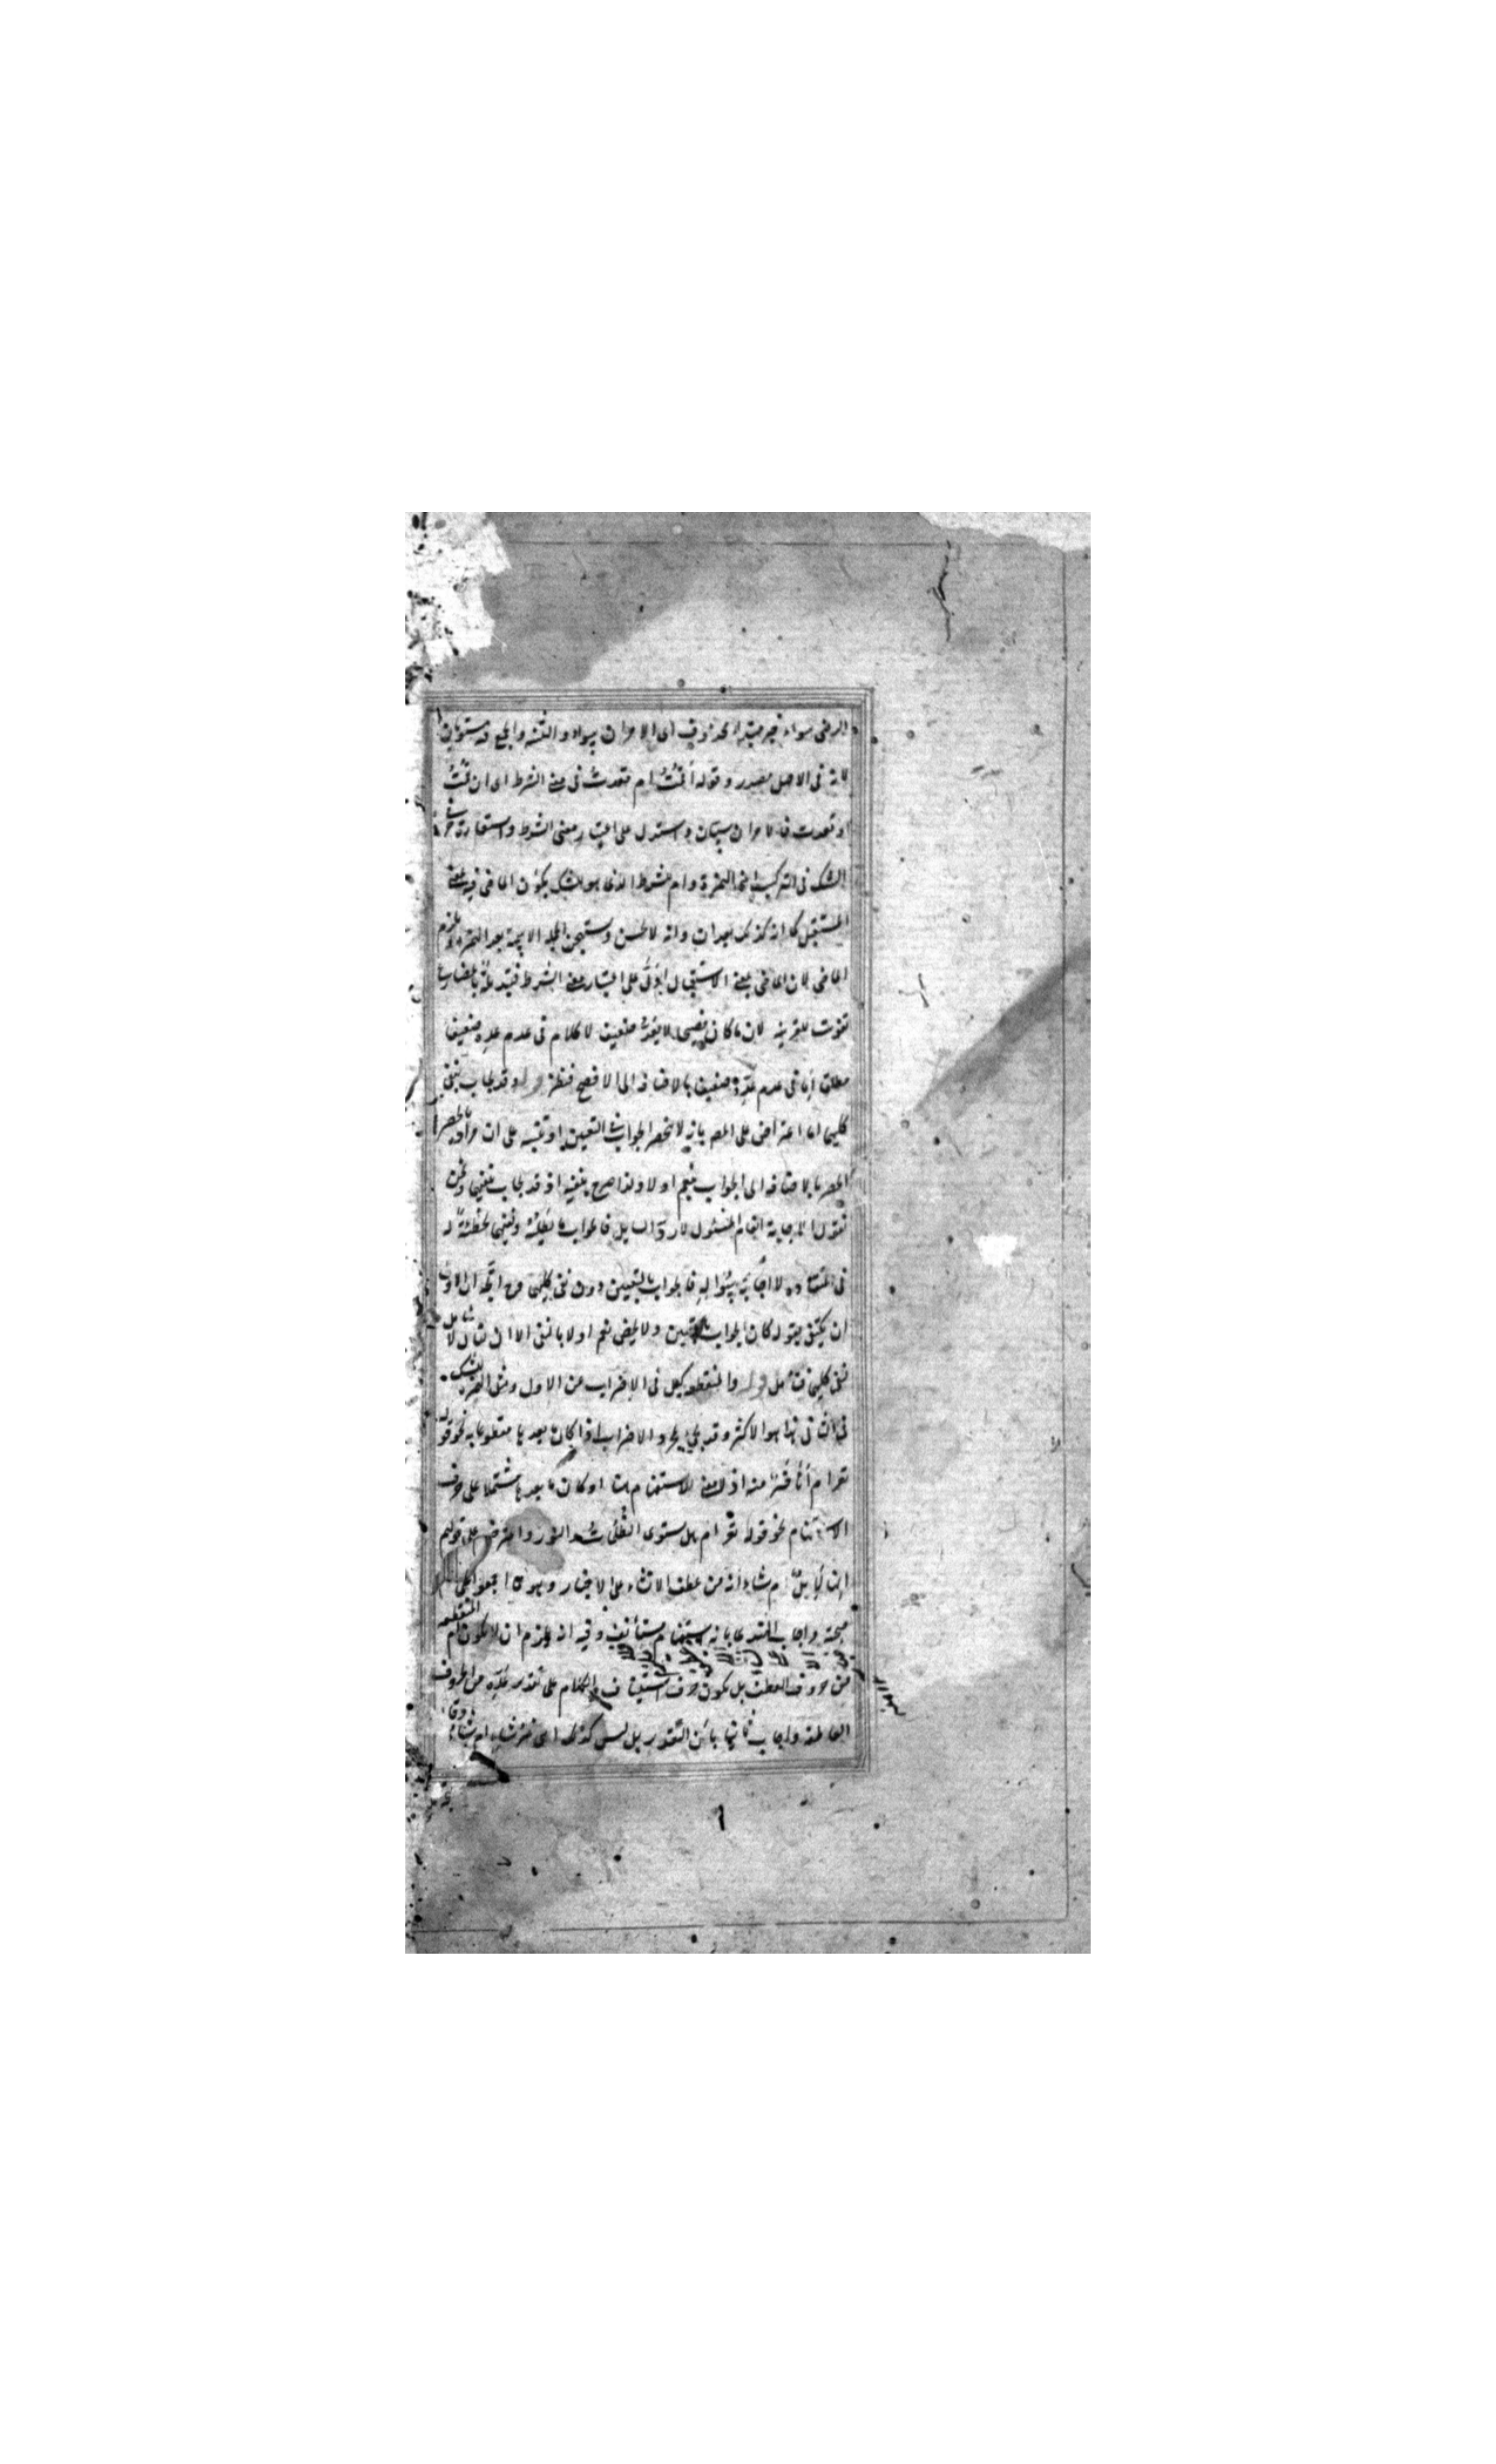 الرضى سواء خبر مبتدأ محذوف اى الامران سواء والتثنية والجمع فيه مستويان
لانه فى الاصل مصدر وقوله أقمتُ ام قعدت فى معنى الشرط اى ان قمتُ
او قعدت فالامران سيان واستدل على اعتبار معنى الشرط واستعارة حرف
الشك فى التركيب اعنى الهمزة وام للشرط الذى هو الشك بكون الماضى فيه بمعنى
المستقبل كما انه كذلك بعد ان وانه لا يحسن ويستهجن الجملة الاسمية بعد الهمزة ويلزم
الماضى لان الماضى بمعنى الاستقبال ادلّ على اعتبار معنى الشرط
تفوت للقرينة لان ما كان فصيحا لا يعدّ ضعيفا لا كلام فى عدم عدّه ضعيفا
مطلقا انما فى عدم عدّه ضعيفا بالاضافة الى الافصح فنظر قوله وقد يجاب بنفى
كليهما اما اعتراض على المصـ بانه لا ينحصر الجواب فى التعيين او تنبيه على ان مراده بالحصر
الحصر بالاضافة الى الجواب بنعم او لا ولذا صرح بنفيه اذ قد يجاب بنفى ونحن
نقول الاجابة اتمام المسئول لا ردّ السايل فالجواب تخطئة له
فى اعتقاده لا اجابة لسؤاله فالجواب بالتعيين دون نفى كليهما
ان يكتفى بقوله كان الجواب بالتعيين ولا نعم او لا بالنفى الا ان يقال لا
نفى كليهما فتأمل قوله والمنقطعة كبل فى الاضراب عن الاول ومثل الهمزة للشك
فى الثانى هذا هو الاكثر وقد يجئ لمجرد الاضراب اذا كان ما بعدها مقطوعا به نحو قوله
تعـ ام أنا خير منه اذ لا معنى للاستفهام هنا او كان ما بعدها مشتملا على حرف
الاستفهام نحو قوله تعـ ام هل تستوى الظلمات والنور واعترض على قولهم
انها لابل ام شاء انه من عطف الانشاء على الاخبار
واجاب بانه استفهام مستأنف وفيه انه يلزم ان لا يكون ام المنقطعة
من حروف العطف بل يكون حرف استيناف والكلام على تقدير عدّه من الحروف
العاطفة واجاب ثانيا بان التقدير بل ليس كذلك اهى شاء ام شاء